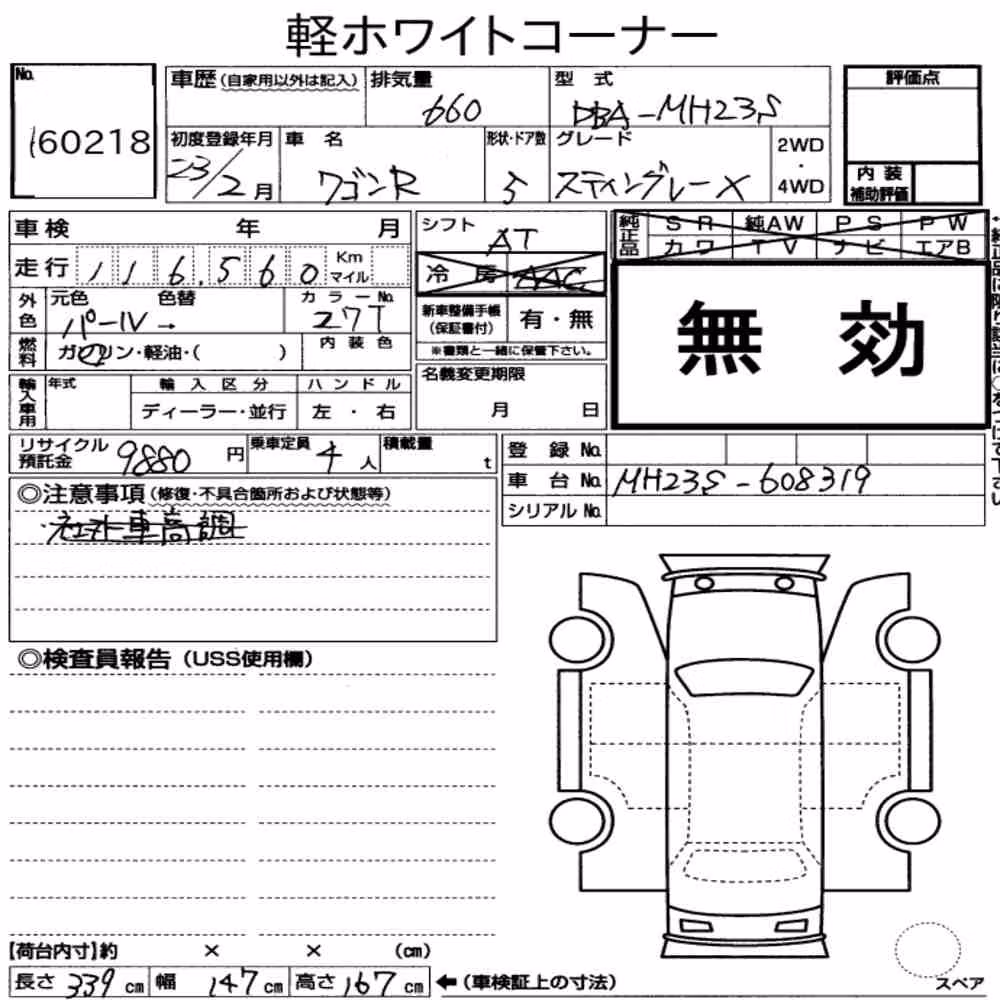 軽ホワイトコーナー
No.
160218
車歴(自家用以外は記入)
排気量
660
型 式
DBA-MH23S
初度登録年月
23/2月
車 名
ワゴンR
形状・ドア数
5
グレード
スティングレーX
2WD
・
4WD
評価点
内 装
補助評価
車検 年 月
走行 116,560 Km
マイル
外色
元色 色替
パール→
カラーNo.
Z7T
燃料
ガソリン・軽油・( )
内 装 色
輸入車用
年式
輸 入 区 分
ディーラー・並行
ハ ン ド ル
左 ・ 右
シフト
AT
冷 房 AAC
新車整備手帳
(保証書付)
有・無
※書類と一緒に保管下さい。
名義変更期限
月 日
純正品
S R 純AW P S P W
カワ T V ナビ エアB
無 効
リサイクル
預託金
9880 円
乗車定員
4 人
積載量
t
登 録 No.
車 台 No. MH23S-608319
シリアル No.
◎注意事項(修復・不具合箇所および状態等)
車高調
◎検査員報告(USS使用欄)
【荷台内寸】約 × × (cm)
長さ 339 cm 幅 147 cm 高さ 167 cm ←(車検証上の寸法)
スペア